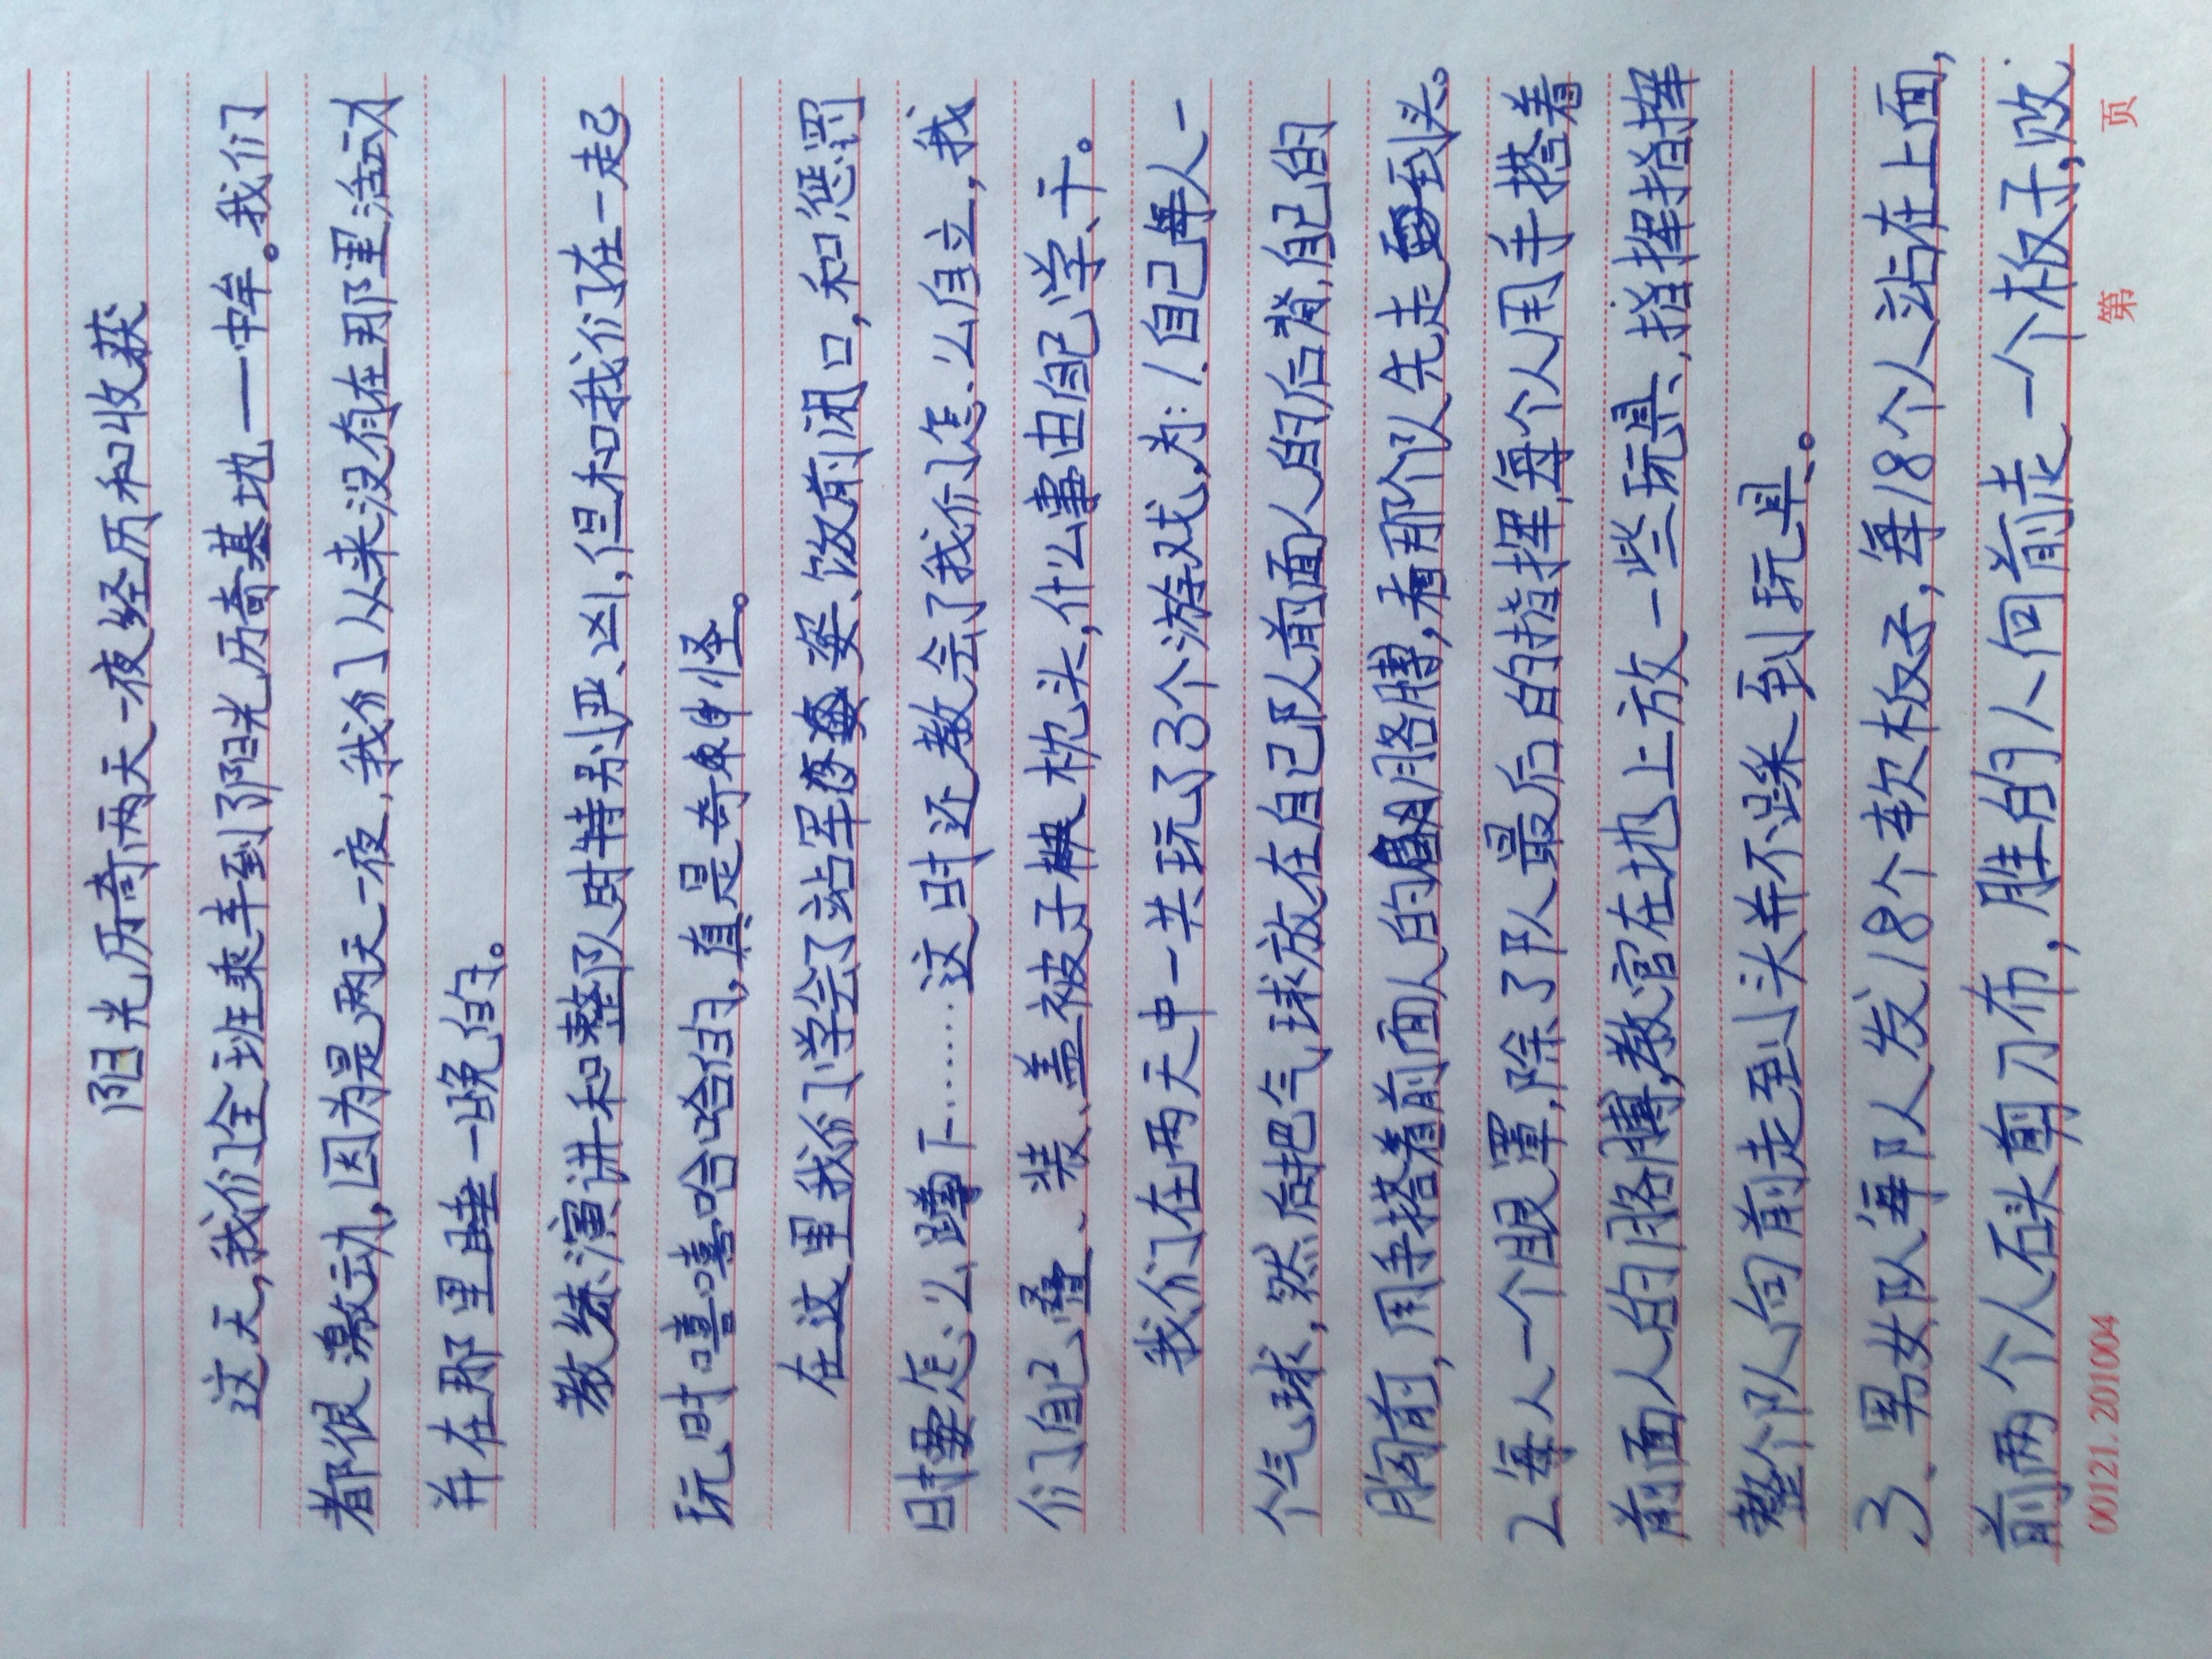 阳光历奇两天一夜经历和收获
这天,我们全班乘车到了阳光历奇基地——中牟。我们
都很激动,因为是两天一夜,我们从来没有在那里活动
并在那里睡一晚的。
教练演讲和整队时特别严、凶,但和我们在一起
玩时嘻嘻哈哈的,真是奇怪。
在这里我们学会了站军姿、饭前闭口,和惩罚
时要怎么蹲下……这时还教会了我们怎么自立,我
们自己叠、装、盖被子枕头,什么事由自己学、干。
我们在两天中一共玩了3个游戏,为:1.自己每人一
个气球,然后把气球放在自己队前面人的后背,自己的
胸前,用手搭着前面人的胳膊,看那个队先走到头。
2.每人一个眼罩,除了队最后的指挥,每个人用手搭着
前面人的胳膊,教官在地上放一些玩具,指挥指挥
整个队向前走到头并不踩到玩具。
3、男女队每队发18个软板子,每18个人站在上面,
前两个人石头剪刀布,胜的人向前走一个板子,败
00121.201004
第 页